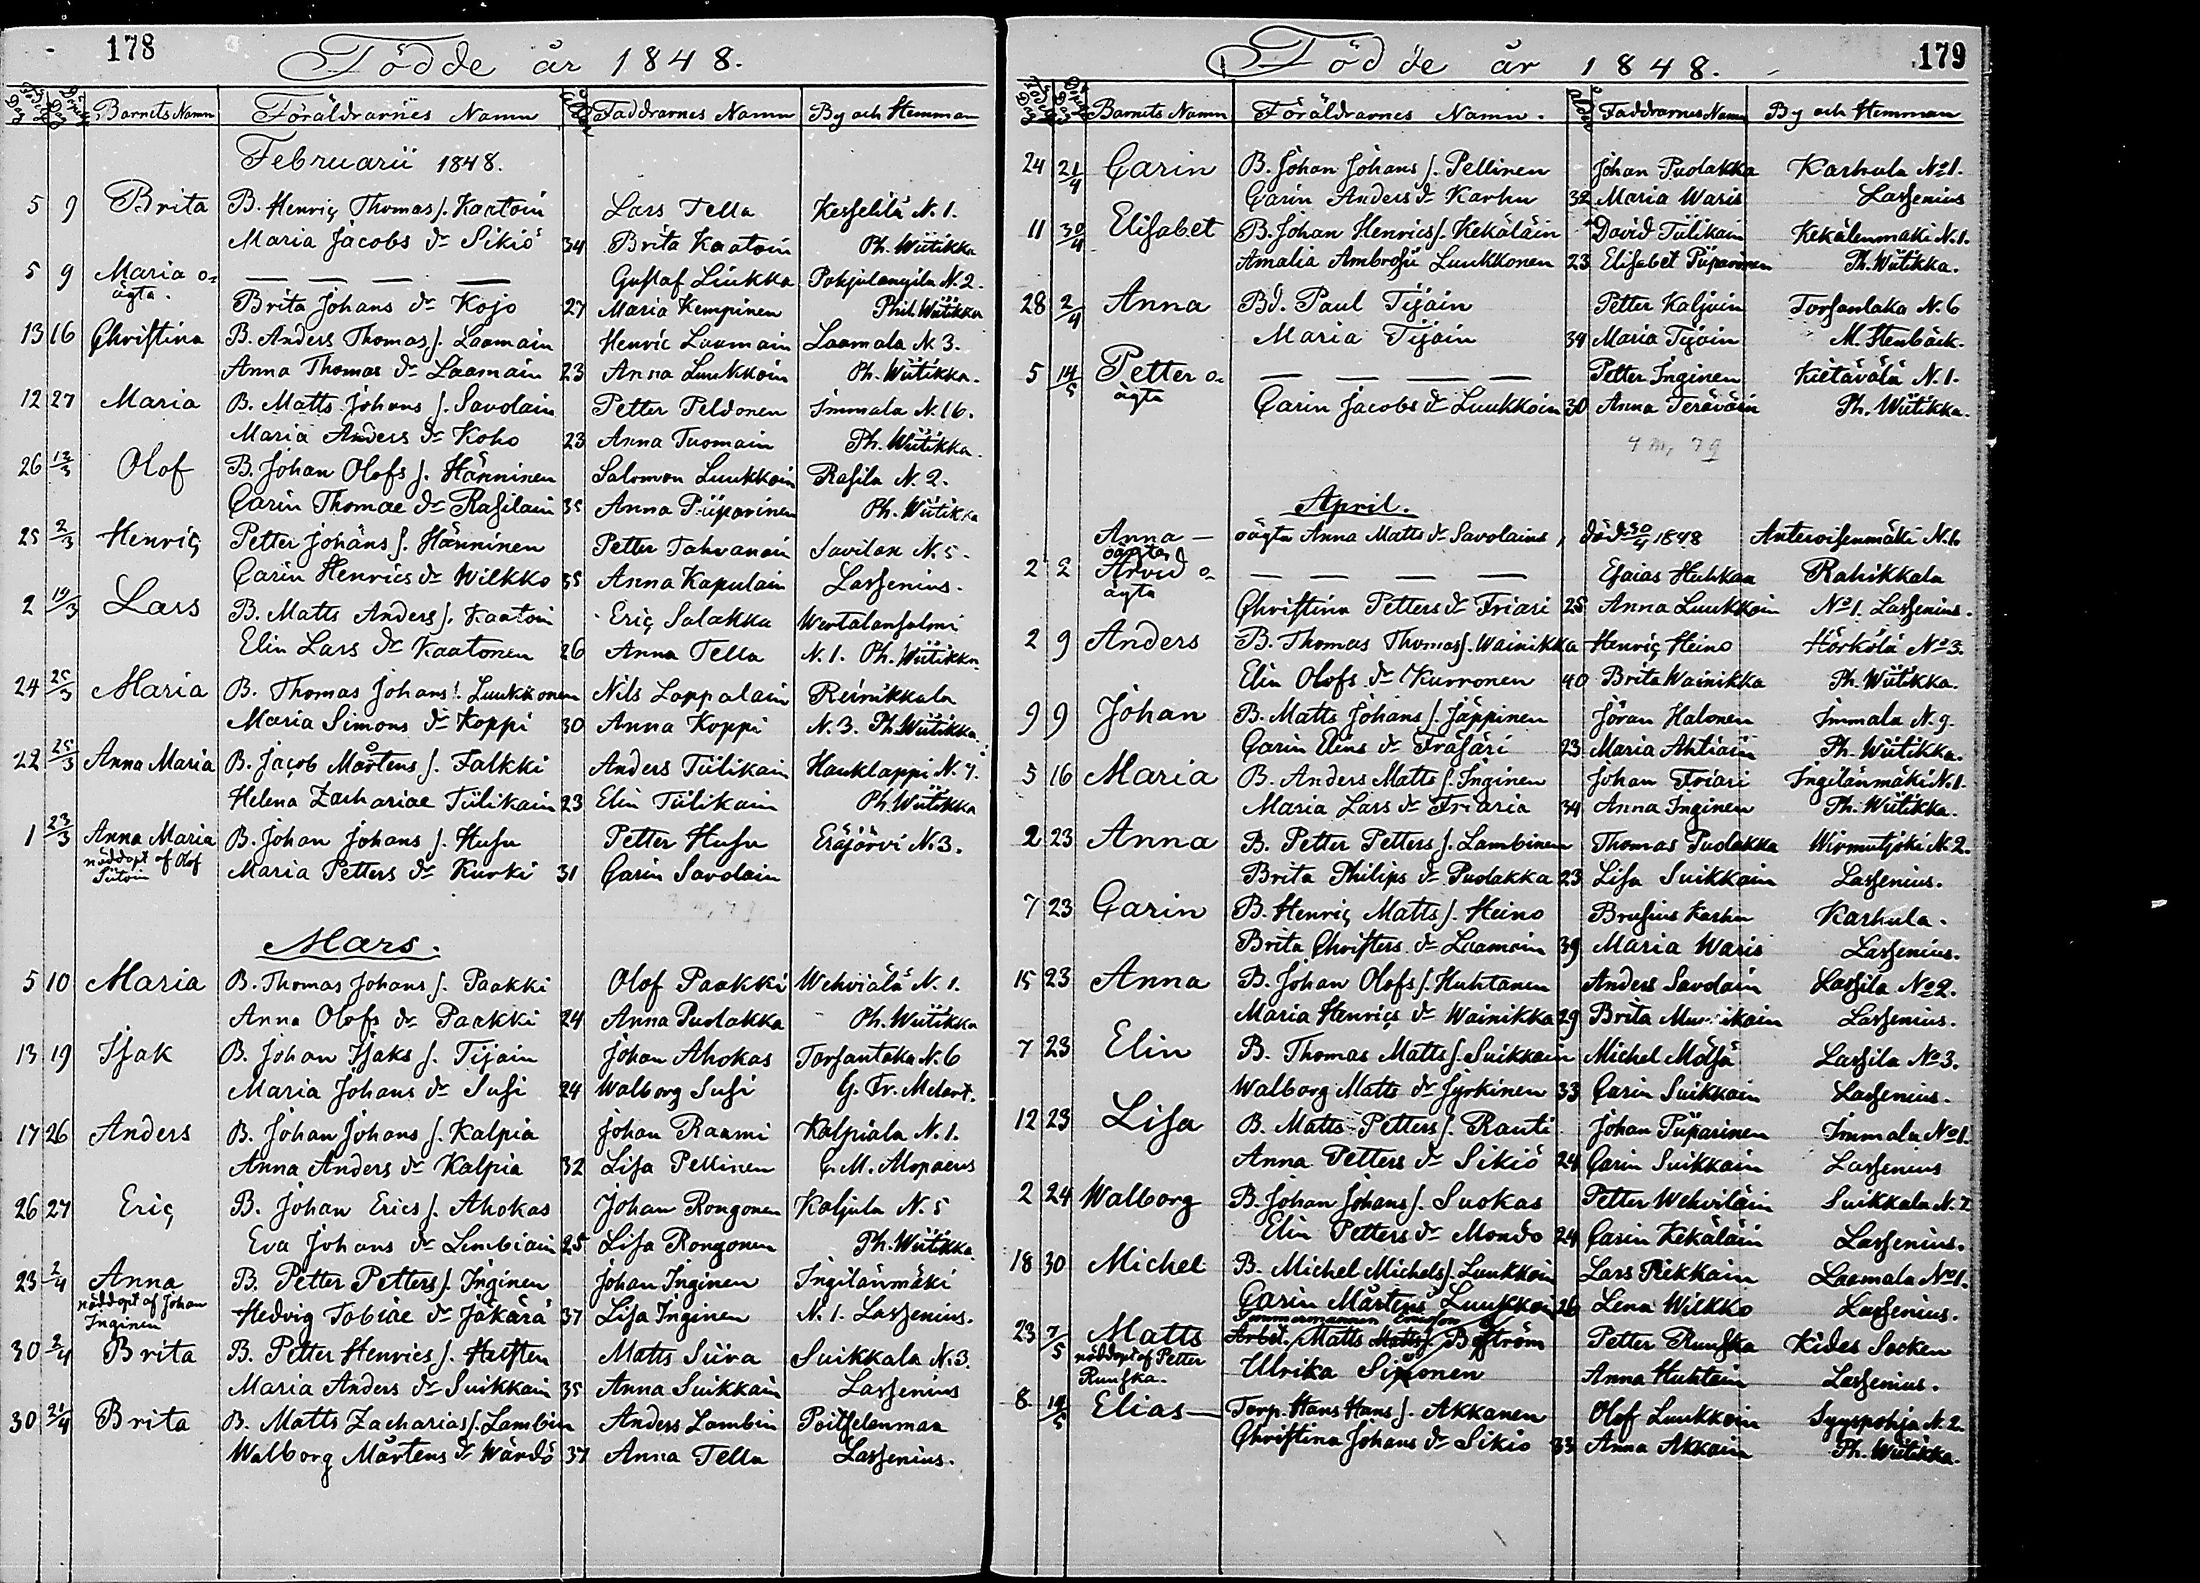 178
Födde år 1848.
Födelse Dag Döpelse Dag Barnets Namn Föräldrarnes Namn Ålder Faddrarnes Namn By och Hemman
Februarii 1848.
5 9 Brita B. Henriç Thomas s. Kaatoin Lars Tella Kesselilä N. 1.
Maria Jacobs dr Sikiö 34 Brita Kaatoin Ph. Wiitikka
5 9 Maria o= — — — — Gustaf Liukka Pohjulangila N. 2.
ägta. Brita Johans dr Kojo 27 Maria Kempinen Phil. Wiitikka
13 16 Christina B. Anders Thomas s. Laamain Henric Laamain Laamala N. 3.
Anna Thomas dr Laamain 23 Anna Luukkoin Ph. Wiitikka.
12 27 Maria B. Matts Johans s. Savolain Petter Peldonen Immala N. 16.
Maria Anders dr Koho 23 Anna Tuomain Ph. Wiitikka.
26 12/3 Olof B. Johan Olofs s. Hänninen Salomon Luukkoin Rasila N. 2.
Carin Thomae dr Rasilain 35 Anna Piiparinen Ph. Wiitikka
25 2/3 Henriç Petter Johans s. Hänninen Petter Tahvanain Savilax N. 5.
Carin Henrics dr Wilkko 35 Anna Kapulain Lassenius.
2 19/3 Lars B. Matts Anders s. Kaatoin Eriç Salakka Wertalansalmi
Elin Lars dr Kaatonen 26 Anna Tella N. 1. Ph. Wiitikka
24 25/3 Maria B. Thomas Johans s. Luukkonen Nils Lappalain Reinikkala
Maria Simons dr Koppi 30 Anna Koppi N. 3. Ph. Wiitikka.
22 25/3 Anna Maria B. Jaçob Mårtens s. Falkki Anders Tiilikain Hauklappi N. 7.
Helena Zachariae Tiilikain 23 Elin Tiilikain Ph. Wiitikka
1 23/3 Anna Maria B. Johan Johans s. Husu Petter Husu Eräjärvi N. 3.
nöddopt af Olof
Siitoin Maria Petters dr Kurki 31 Carin Savolain
Mars.
5 10 Maria B. Thomas Johans s. Paakki Olof Paakki Wehviälä N. 1.
Anna Olofs dr Paakki 24 Anna Pudakka Ph. Wiitikka
13 19 Isak B. Johan Isaks s. Tijain Johan Ahokas Torsantaka N. 6
Maria Johans dr Susi 24 Walborg Susi G. Fr. Melart.
17 26 Anders B. Johan Johans s. Kalpia Johan Raami Kalpiala N. 1.
Anna Anders dr Kalpia 32 Lisa Pellinen C. M. Alopaeus
26 27 Eriç B. Johan Erics s. Ahokas Johan Rongonen Kaljula N. 5
Eva Johans dr Limbiain 25 Lisa Rongonen Ph. Wiitikka
23 2/4 Anna B. Petter Petters s. Inginen Johan Inginen Ingilänmäki
nöddopt af Johan
Inginen Hedvig Tobiae dr Jäkärä 37 Lisa Inginen N. 1. Lassenius.
30 2/4 Brita B. Petter Henrics s. Halften Matts Siira Suikkala N. 3.
Maria Anders dr Suikkain 35 Anna Suikkain Lassenius
30 21/4 Brita B. Matts Zacharias s. Lambin Anders Lambin Poitselanmaa
Walborg Mårtens dr Wärdö 37 Anna Tella Lassenius.
179
Födde år 1848.
Födelse Dag Döpelse Dag Barnets Namn Föräldrarnes Namn. Ålder Faddrarnes Namn By och Hemman
24 21/4 Carin B. Johan Johans s. Pellinen Johan Pudakka Karhula No 1.
Carin Anders dr Karhu 32 Maria Waris Lassenius
11 30/4 Elisabet B. Johan Henrics s. Kekäläin David Tiilikain Kekälenmäki N. 1.
Amalia Ambrosii Luukkonen 23 Elisabet Piiparinen Ph. Wiitikka.
28 2/4 Anna Bd. Paul Tijain Petter Kaljuin Torsantaka N. 6
Maria Tijain 34 Maria Tijain M. Stenbäck.
5 14/5 Petter o= — — — — Petter Inginen Kietävälä N. 1.
ägta Carin Jacobs dr Luukkoin 30 Anna Teräväin Ph. Wiitikka.
April.
Anna — oägta Anna Matts dr Savolains, död 30/4 1848 Anteroisenmäki N. 6
oägta
2 2 Arvid o= — — — — Esaias Huhkaa Rahikkala
ägta Christina Petters dr Friari 25 Anna Luukkoin No 1. Lassenius.
2 9 Anders B. Thomas Thomas s. Wainikka Henriç Heino Härkölä No 3.
Elin Olofs dr Kurronen 40 Brita Wainikka Ph. Wiitikka.
9 9 Johan B. Matts Johans s. Jäppinen Jöran Halonen Immala N. 9.
Carin Elins dr Frasäri 23 Maria Ahtiain Ph. Wiitikka.
5 16 Maria B. Anders Matts s. Inginen Johan Friari Ingilänmäki N. 1.
Maria Lars dr Friaria 34 Anna Inginen Ph. Wiitikka.
2 23 Anna B. Petter Petters s. Lambinen Thomas Pudakka Wirmutjoki N. 2.
Brita Philips dr Pudakka 23 Lisa Suikkain Lassenius.
7 23 Carin B. Henriç Matts s. Heino Brusius Karhu Karhula.
Brita Christers dr Laamain 39 Maria Waris Lassenius.
15 23 Anna B. Johan Olofs s. Huhtanen Anders Savolain Lassila No 2.
Maria Henriçs dr Wainikka 29 Brita Lassenius.
7 23 Elin B. Thomas Matts s. Suikkain Michel Mälsä Lassila No 3.
Walborg Matts dr Jyrkinen 33 Carin Suikkain Lassenius.
12 23 Lisa B. Matts Petters s. Rauti Johan Piiparinen Immala No 1.
Anna Petters dr Sikiö 24 Carin Suikkain Lassenius
2 24 Walborg B. Johan Johans s. Suokas Petter Wehviläin Suikkala N. 7.
Elin Petters dr Mondo 24 Carin Kekäläin Lassenius.
18 30 Michel B. Michel Michels s. Luukkoin Lars Pekkain Laamala No 1.
Carin Mårtens Luukkoin 26 Lena Wilkko Lassenius.
Timmermannen
23 7/5 Matts Arbet. Matts Matts s. Boström Petter Ruuska Kides Socken
nöddopt af Petter
Ruuska. Ulrika Simonen Anna Huhtain Lassenius.
8 14/5 Elias — Torp. Hans Hans s. Akkanen Olof Luukkoin Syyspohja N. 2.
Christina Johans dr Sikiö 33 Anna Akkain Ph. Wiitikka.